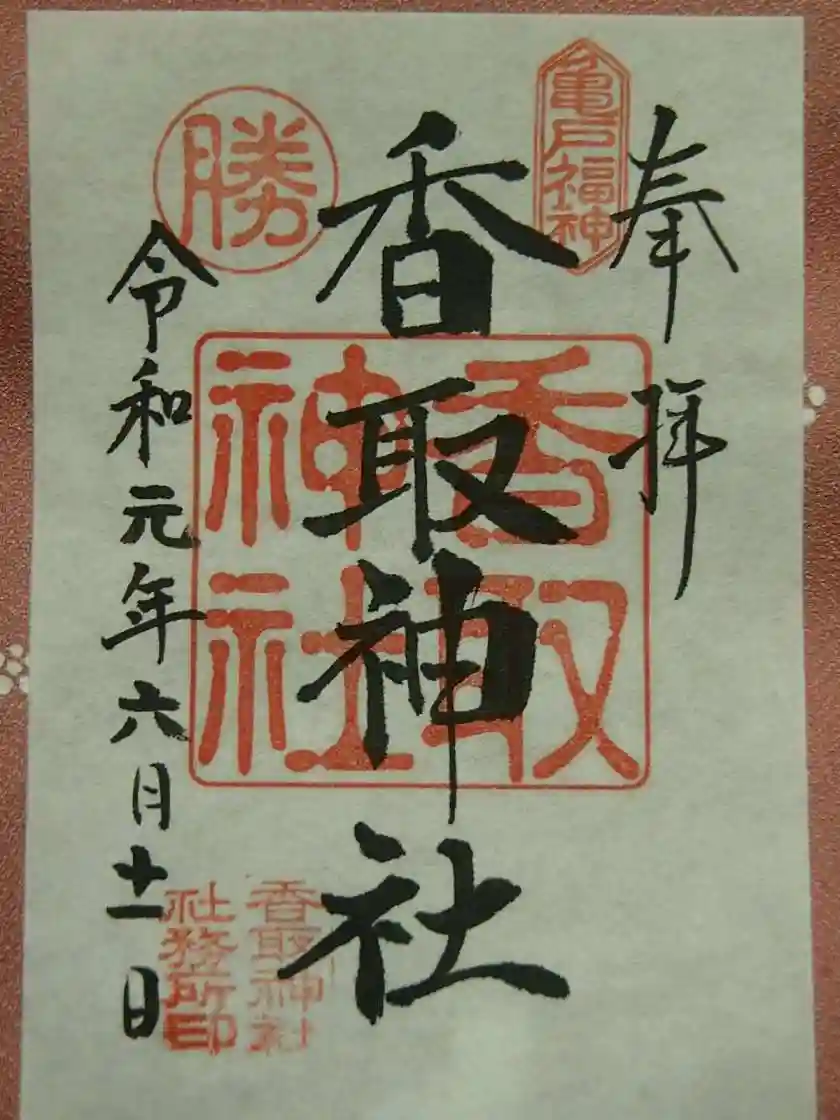 奉拝
亀戸福神
香取神社
香取神社
勝
令和元年六月十一日
香取神社
社務所印